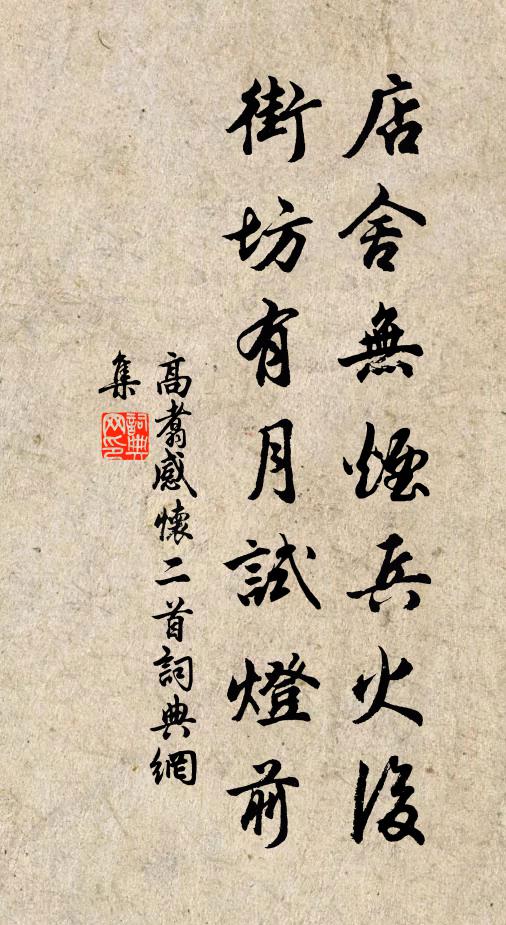 店舍無煙兵火後
街坊有月試燈前
高翥感懷二首詞典網
集
詞典
网印